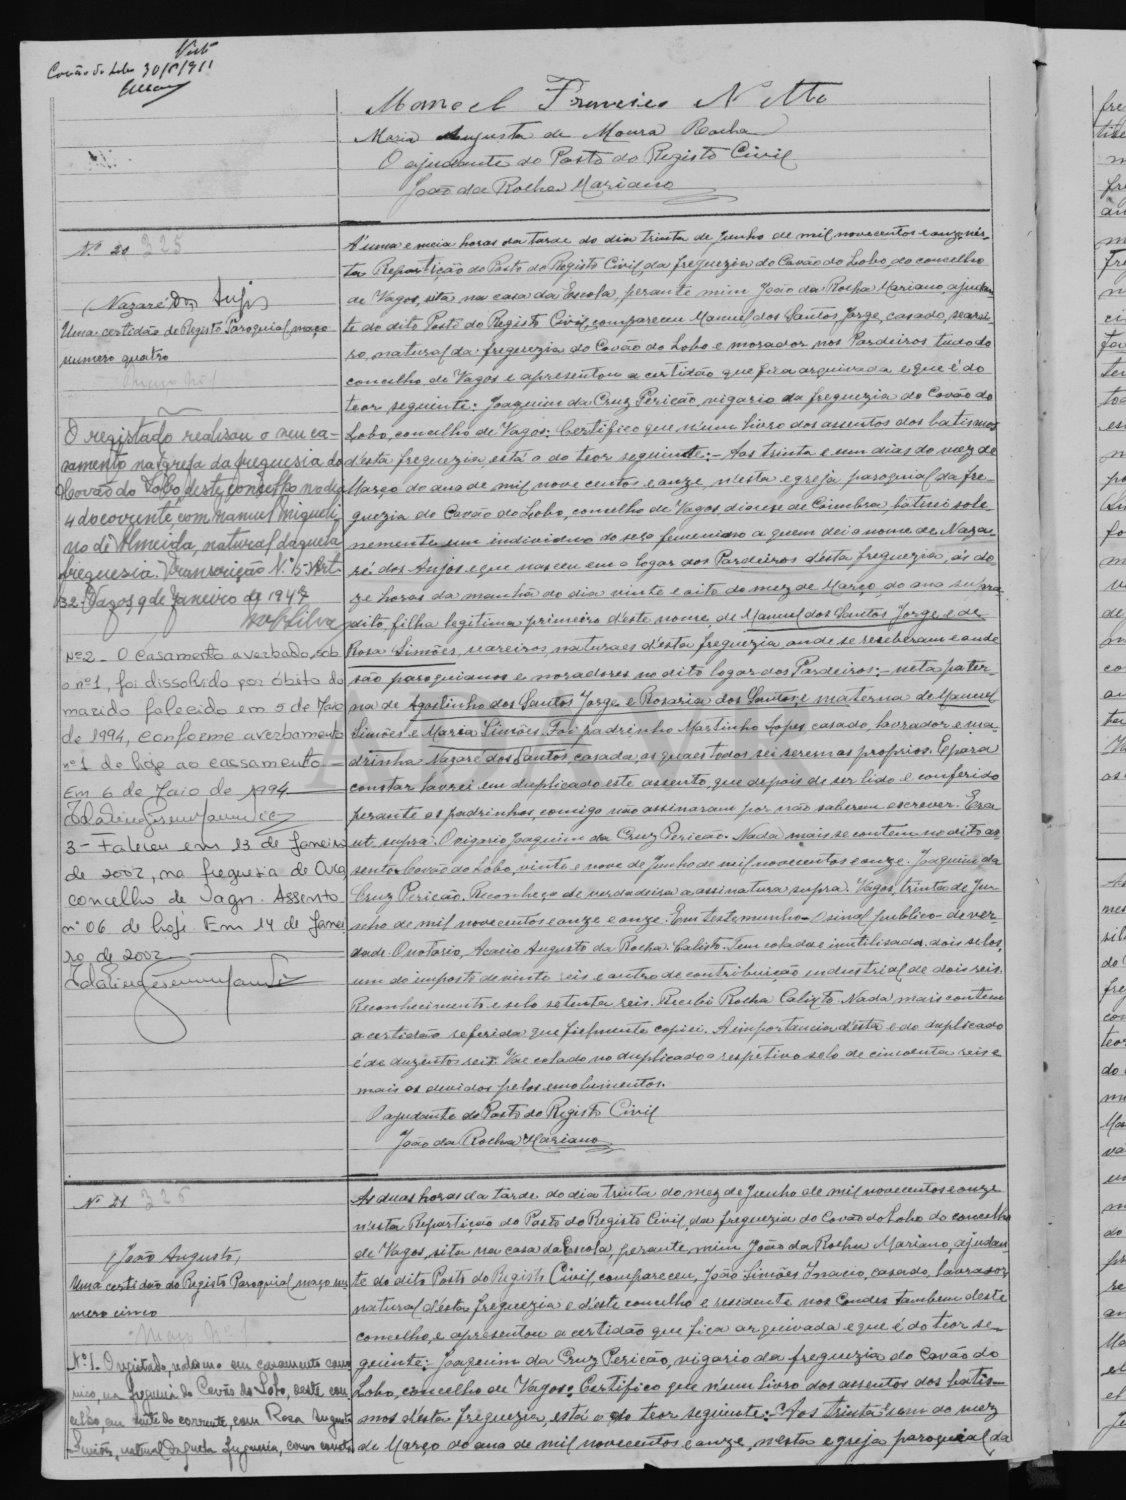 Visto
Covão do Lobo 30/6/911
Manoel Francisco Netto
Maria Augusta de Moura Rocha
O ajudante do Posto do Registo Civil
João da Rocha Mariano
Nº 20 325
Nazaré dos Anjos
Uma certidão de Registo Paroquial, maço
numero quatro
Maço Nº 1
O registado realisou o seu ca-
samento na Igreja da freguesia do
Covão do Lobo, deste concelho no dia
4 do corrente, com Manuel Migueli-
no de Almeida, natural daquela
freguesia. Transcrição N.º 5-Art.
32. Vagos, 9 de Janeiro de 1947
Silva
Nº 2 - O casamento averbado, sob
o nº 1, foi dissolvido por óbito do
marido falecido em 5 de Maio
de 1994, conforme averbamento
nº 1 de hoje ao casamento
Em 6 de Maio de 1994
3 - Faleceu em 13 de Janeiro
de 2002, na freguesia de
concelho de Vagos. Assento
nº 06 de hoje. Em 14 de Janei
ro de 2002
A' uma e meia horas da tarde do dia trinta de Junho de mil novecentos e onze, nes-
ta Repartição do Posto do Registo Civil, da freguezia do Covão do Lobo, do concelho
de Vagos, sita na casa da Escola, perante mim João da Rocha Mariano, ajudan-
te do dito Posto do Registo Civil, compareceu Manuel dos Santos Jorge, casado, searei-
ro, natural da freguezia do Covão do Lobo e morador nos Pardeiros tudo do
concelho de Vagos e apresentou a certidão que fica arquivada e que é do
teor seguinte: Joaquim da Cruz Pericão, vigario da freguezia do Covão do
Lobo, concelho de Vagos: Certifico que n'um livro dos assentos dos batismos
d'esta freguezia, está o do teor seguinte: - Aos trinta e um dias do mez de
Março do ano de mil nove centos e onze, n'esta egreja paroquial da fre-
guezia do Covão do Lobo, concelho de Vagos, diocese de Coimbra batisei sole-
nemente um individuo do sexo femenino a quem dei o nome de Naza-
ré dos Anjos e que nasceu em o logar dos Pardeiros d'esta freguezia, ás do
ze horas da manhã do dia vinte e oito do mez de Março, do ano supra
dito, filha legitima primeiro d'este nome, de Manuel dos Santos Jorge e de
Rosa Simões, seareiros, naturaes d'esta freguezia onde se receberam e onde
são paroquianos e moradores no dito logar dos Pardeiros: - neta pater-
na de Agostinho dos Santos Jorge e Rosaria dos Santos, e materna de Manuel
Simões e Maria Simões. Foi padrinho Martinho Lopes, casado, lavrador e ma-
drinha Nazaré dos Santos, casada, os quaes todos sei serem os proprios. E para
constar lavrei em duplicado este assento, que depois de ser lido e conferido
perante os padrinhos, comigo não assinaram por não saberem escrever. Era
ut supra. O vigario Joaquim da Cruz Pericão. Nada mais se contem no dito as-
sento. Covão do Lobo, vinte e nove de Junho de mil novecentos e onze. Joaquim da
Cruz Pericão. Reconheço de verdadeira a assinatura supra. Vagos, trinta de Ju-
nho de mil novecentos e onze e onze. Em testemunho o sinal publico de ver
dade. O notario, Acacio Augusto da Rocha Calisto. Tem colados e inutilisados dois selos,
um do imposto de vinte reis e outro de contribuição industrial de dois reis.
Reconhecimento e selo setenta reis. Recebi Rocha Calisto. Nada mais contem
a certidão referida que fielmente copiei. A importancia d'esta e do duplicado
é de duzentos reis. Vae colado no duplicado o respetivo selo de cincoenta reis e
mais os devidos pelos emolumentos.
O ajudante do Posto do Registo Civil
João da Rocha Mariano
Nº 21 326
João Augusto,
Uma certidão do Registo Paroquial, maço nu
mero cinco
Maço Nº 1
Nº 1. O registado, realisou em casamento
na freguesia do Covão do Lobo, deste con
celho, em do corrente, com Rosa Augusta
Simões, natural daquela freguesia, como consta
As duas horas da tarde do dia trinta do mez de Junho de mil novecentos e onze
n'esta Repartição do Posto do Registo Civil, da freguezia do Covão do Lobo do concelho
de Vagos, sita na casa da Escola, perante mim João da Rocha Mariano, ajudan-
te do dito Posto do Registo Civil, compareceu, João Simões Inacio, casado, lavrador
natural d'esta freguezia e d'este concelho e residente nos Condes tambem deste
concelho, e apresentou a certidão que fica arquivada e que é do teor se-
guinte: Joaquim da Cruz Pericão, vigario da freguezia do Covão do
Lobo, concelho de Vagos: Certifico que n'um livro dos assentos dos batis-
mos d'esta freguezia, está o do teor seguinte: - Aos trinta e um do mez
de Março do ano de mil novecentos e onze, nesta egreja paroquial da